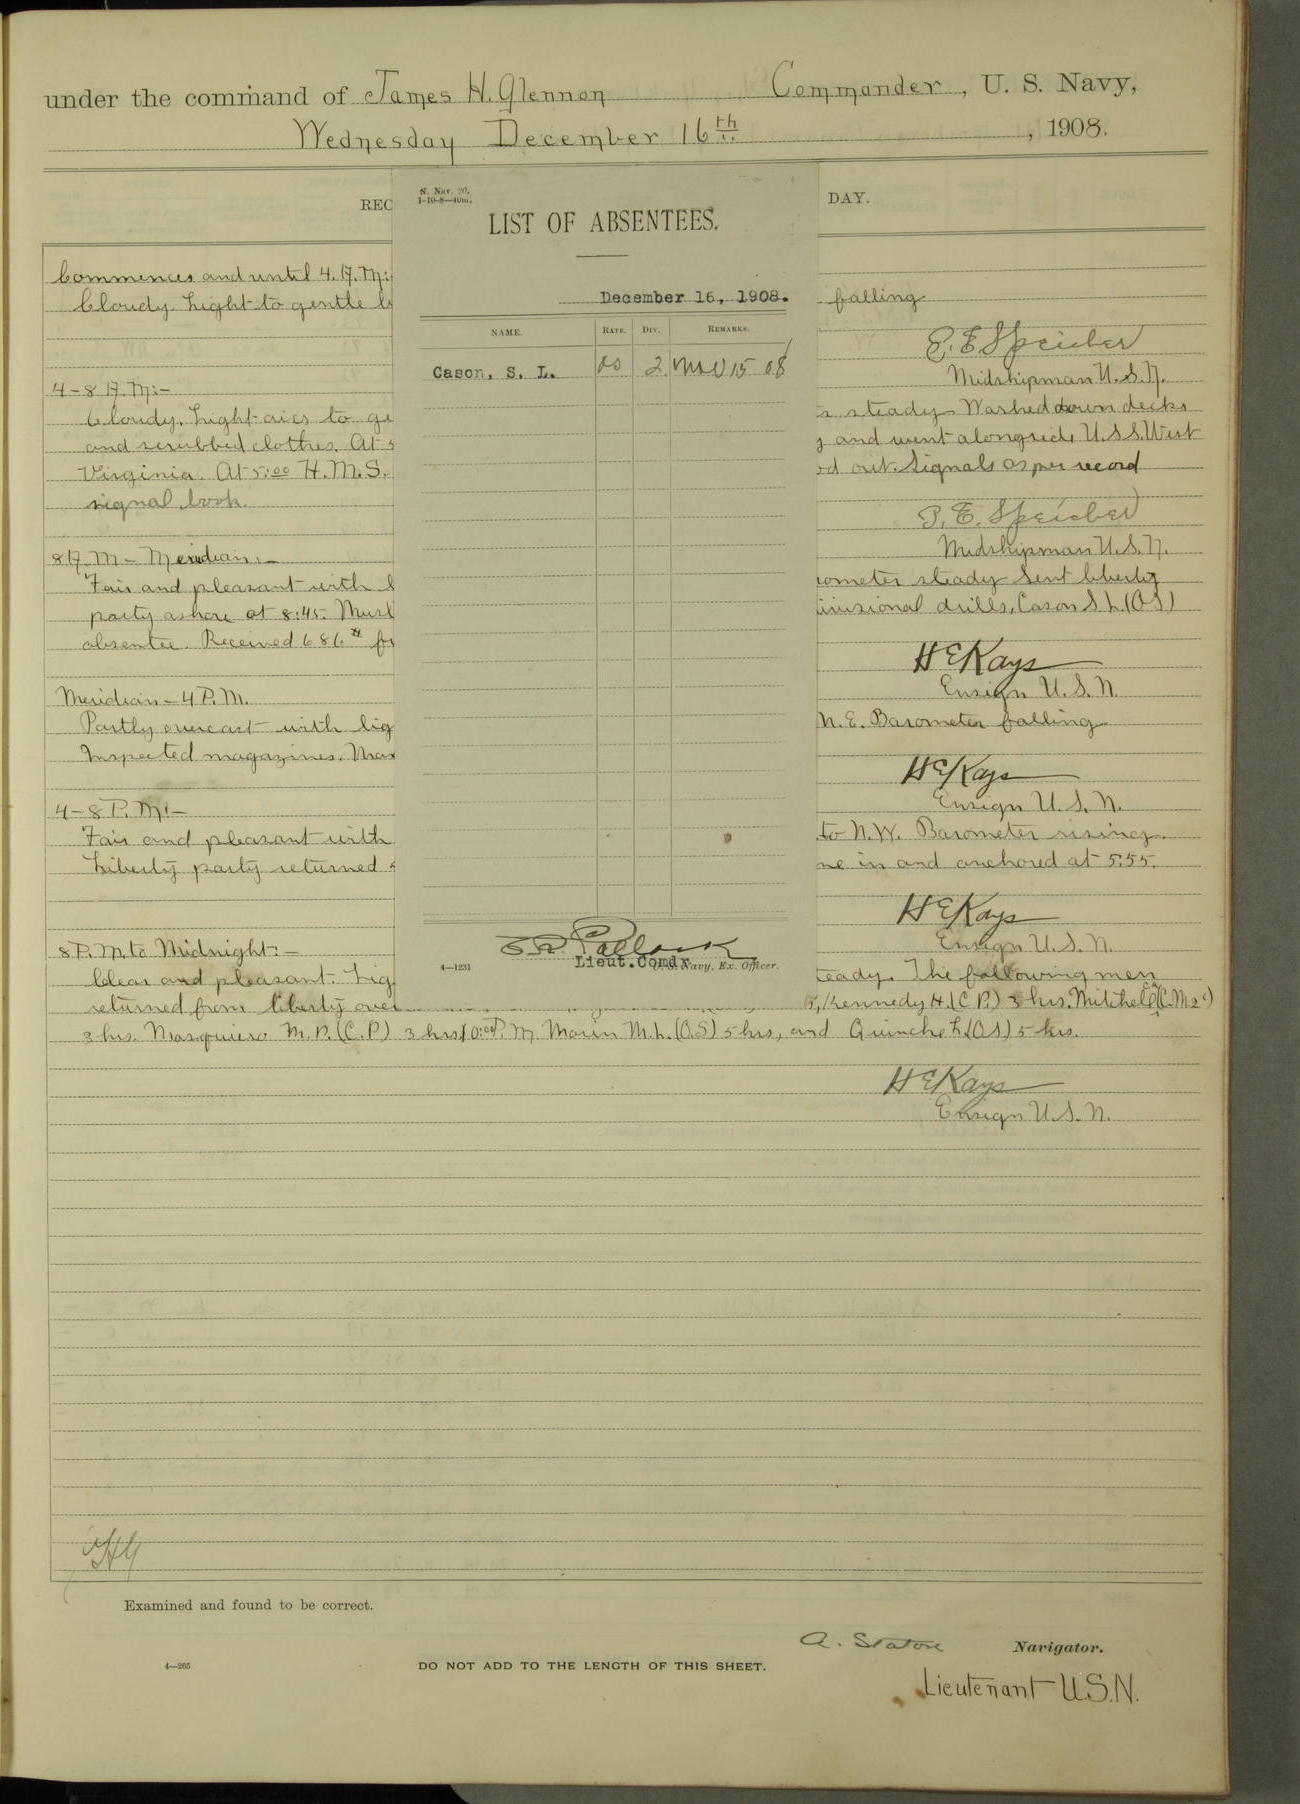 under the command of James H. Glennon Commander, U. S. Navy,
Wednesday December 16th, 1908.
REC
DAY.
N. Nav. 20.
1-10-8—40m.
LIST OF ABSENTEES.
December 16, 1908.
NAME. RATE. DIV. REMARKS.
Cason, S. L. OS 2 Nov 15 08
Lieut.Comdr U. S. Navy, Ex. Officer.
4—1231
Commences and until 4. A.M:-
Cloudy. Light to gentle falling
P. E. Speicher
Midshipman U.S.N.
4-8 A.M:-
Cloudy. Light airs to ge steady. Washed down decks
and scrubbed clothes. At and went alongside U.S.S. West
Virginia. At 5:00 H.M.S. out. Signals as per record
signal book.
P. E. Speicher
Midshipman U.S.N.
8 A.M - Meridian:-
Fair and pleasant with ometer steady Sent liberty
party ashore at 8:45. Must divisional drills, Cason S L. (OS)
absentee. Received 686#
H E Kays
Ensign U.S.N.
Meridian - 4 P.M.
Partly overcast with lig N.E. Barometer falling
Inspected magazines.
H E Kays
Ensign U.S.N.
4-8 P.M:-
Fair and pleasant with to N.W. Barometer rising.
Liberty party returned me in and anchored at 5:55.
H E Kays
Ensign U.S.N.
8 P.M. to Midnight:-
Clear and pleasant. Lig teady. The following men
returned from liberty over Kennedy H. (C.P.) 3 hrs. Mitchell (C.M 2c)
3 hrs. Marquiero M. P. (C.P.) 3 hrs. 10:00 P.M. Marin M. L. (O.S) 5 hrs, and Quinche L. (OS) 5 hrs.
H E Kays
Ensign U.S.N.
JHG
Examined and found to be correct.
A. Staton Navigator.
4—265
DO NOT ADD TO THE LENGTH OF THIS SHEET.
Lieutenant U.S.N.